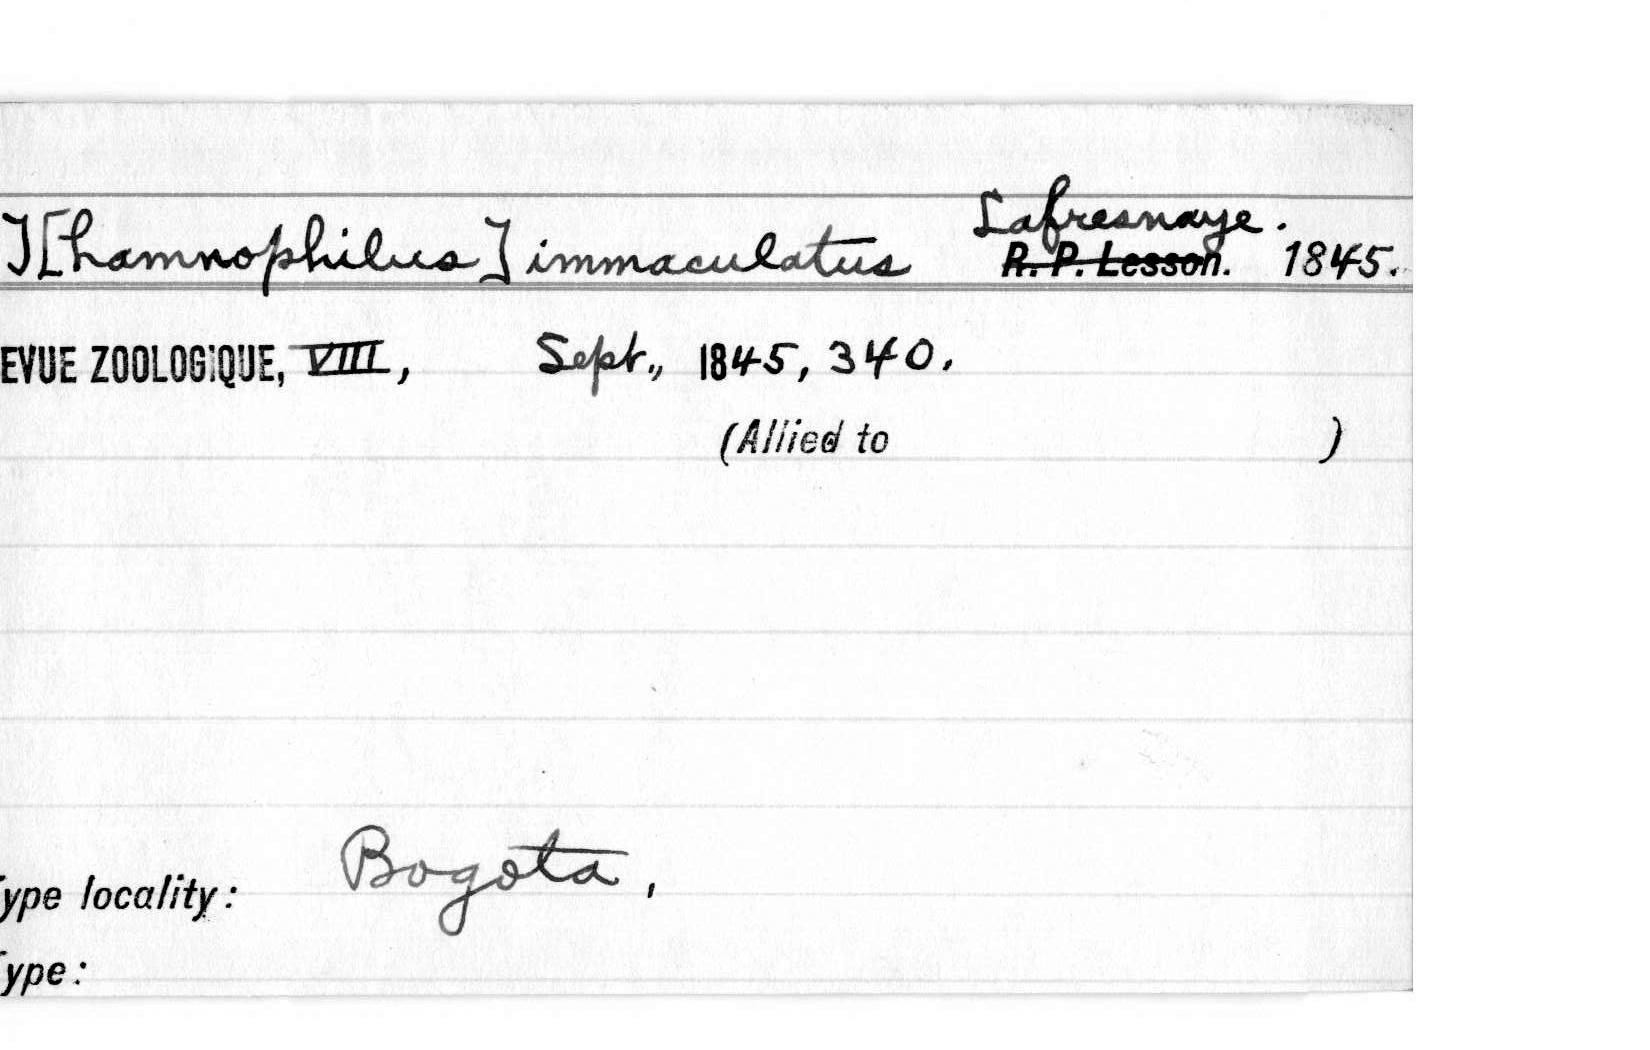 T[hamnophilus] immaculatus Lafresnaye.
R. P. Lesson. 1845.
EVUE ZOOLOGIQUE, VIII, Sept., 1845, 340.
(Allied to )
ype locality: Bogota,
ype: